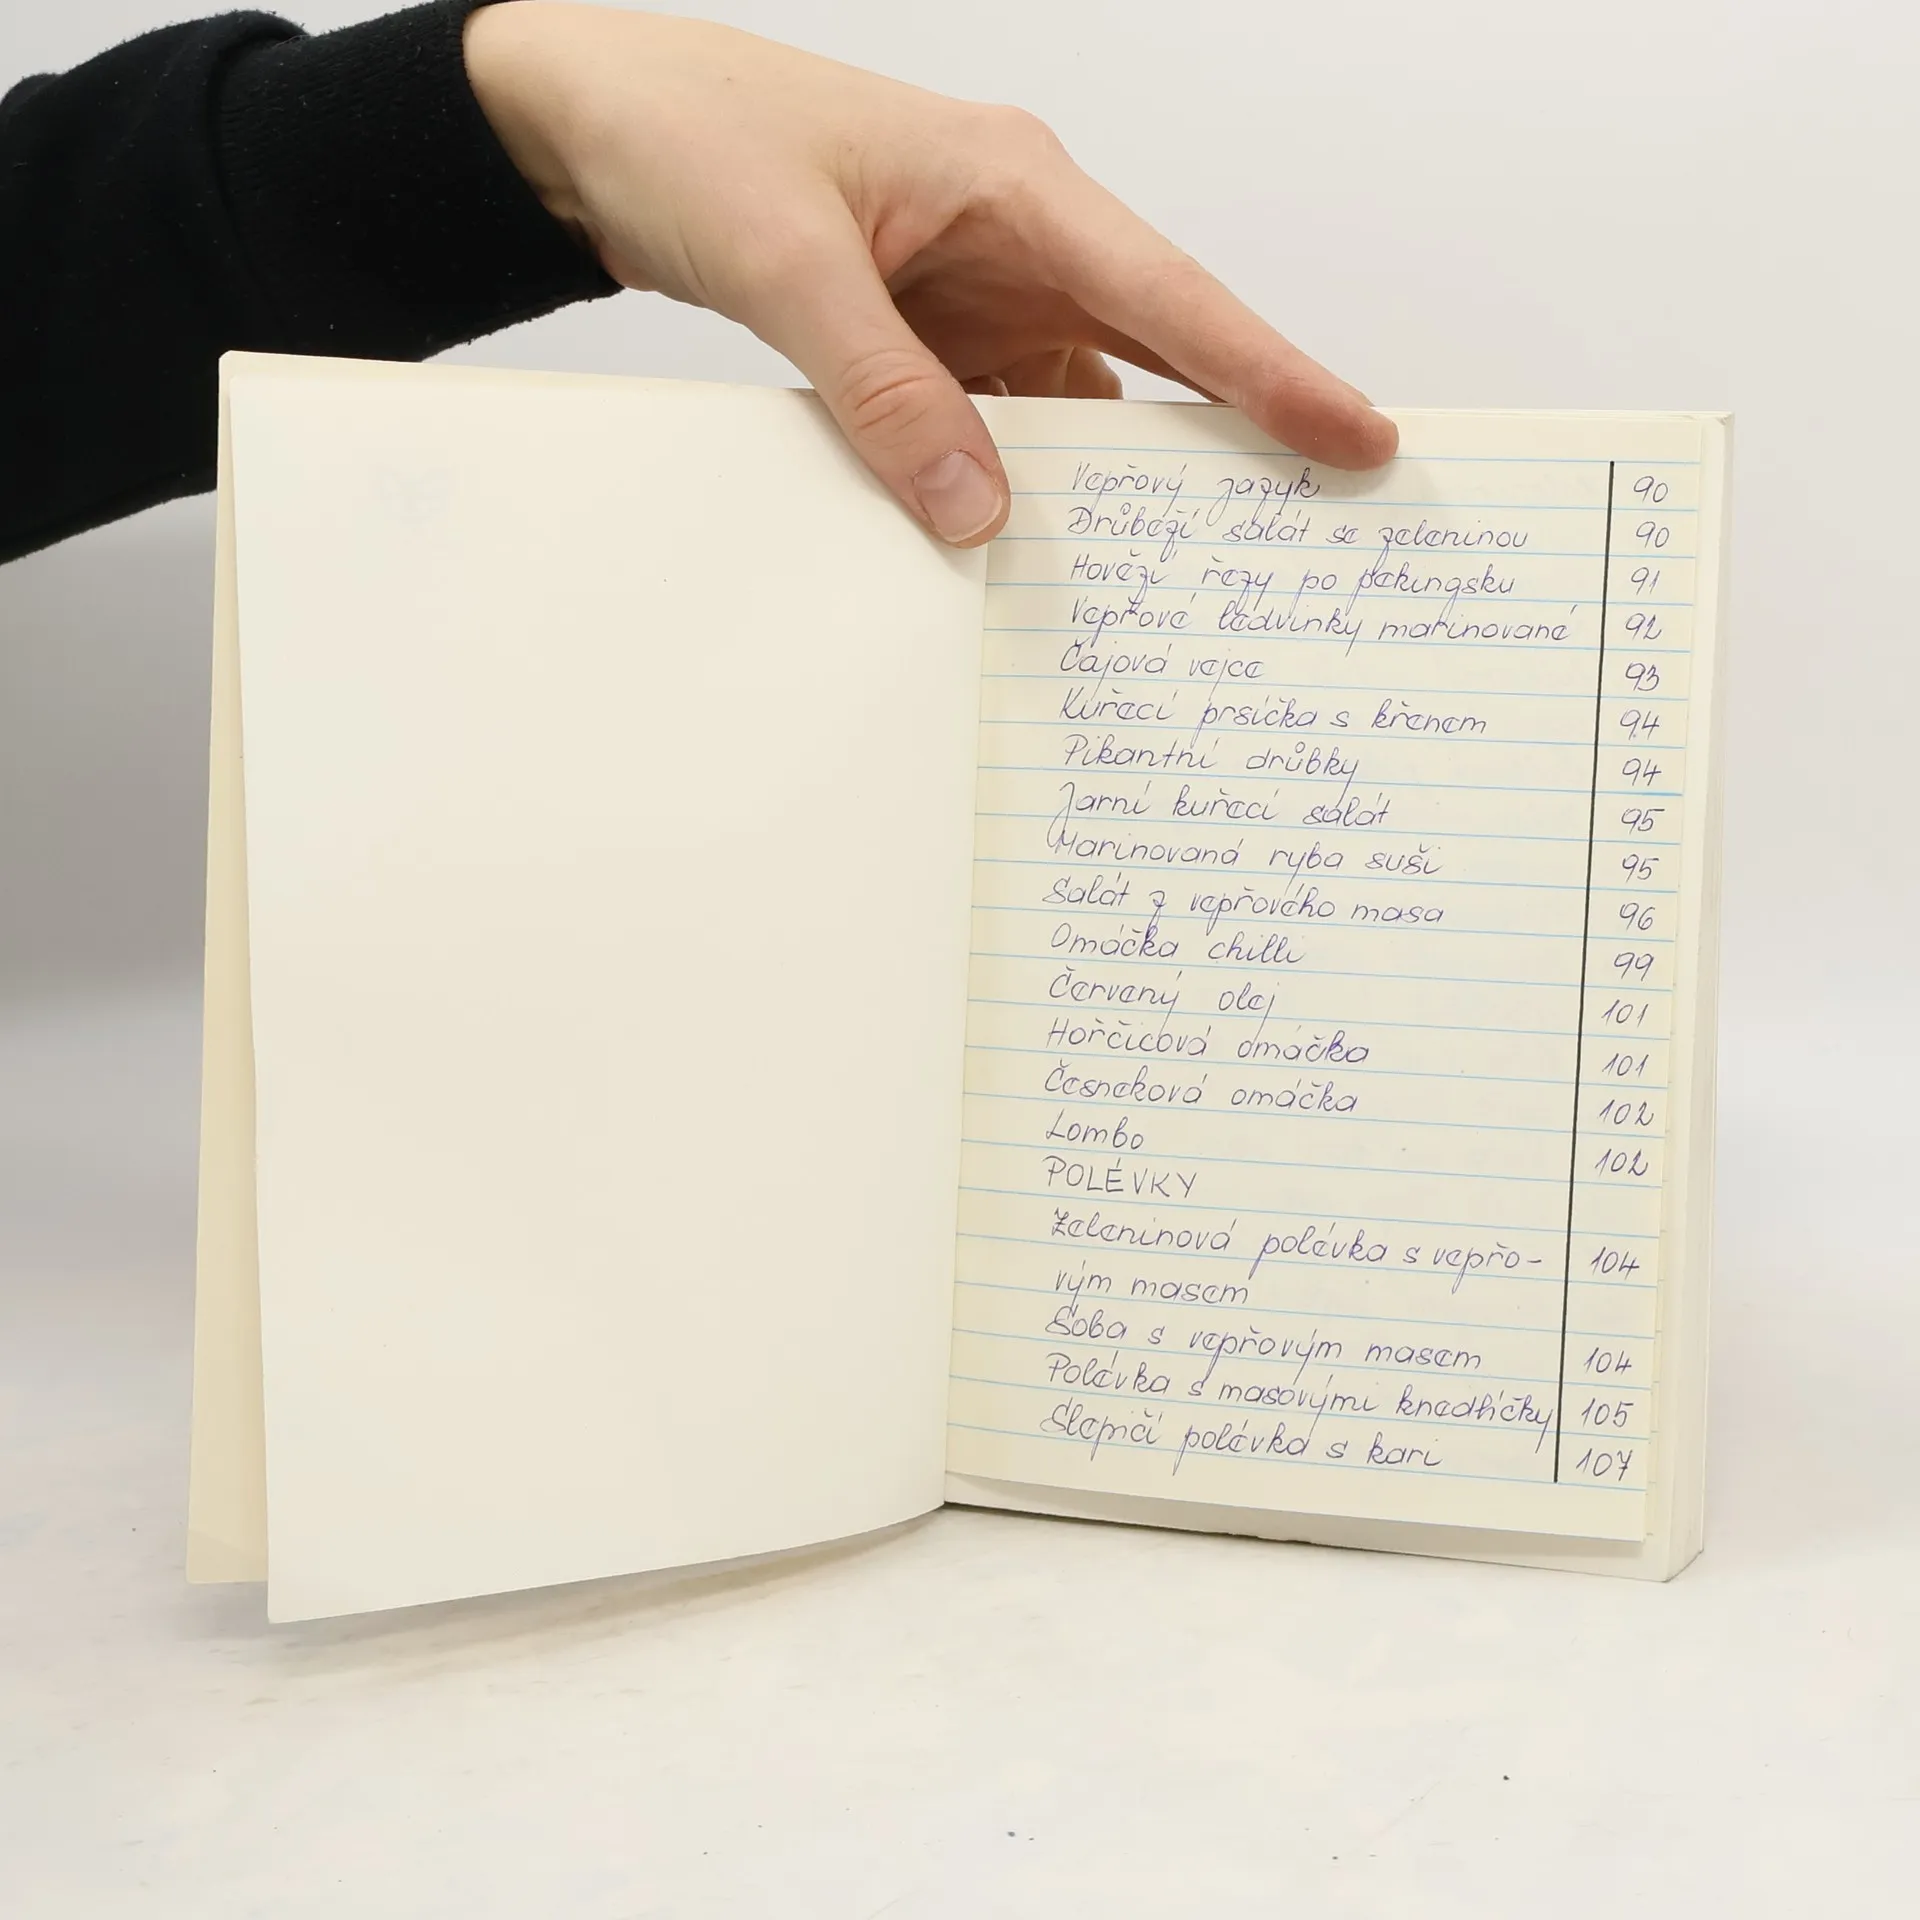 Vepřový jazyk 90
Drůbeží salát se zeleninou 90
Hovězí řezy po pekingsku 91
Vepřové ledvinky marinované 92
Čajová vejce 93
Kuřecí prsíčka s křenem 94
Pikantní drůbky 94
Jarní kuřecí salát 95
Marinovaná ryba suši 95
Salát z vepřového masa 96
Omáčka chilli 99
Červený olej 101
Hořčicová omáčka 101
Česneková omáčka 102
Lombo 102
POLÉVKY
Zeleninová polévka s vepřo- 104
vým masem
Soba s vepřovým masem 104
Polévka s masovými knedlíčky 105
Slepičí polévka s kari 107